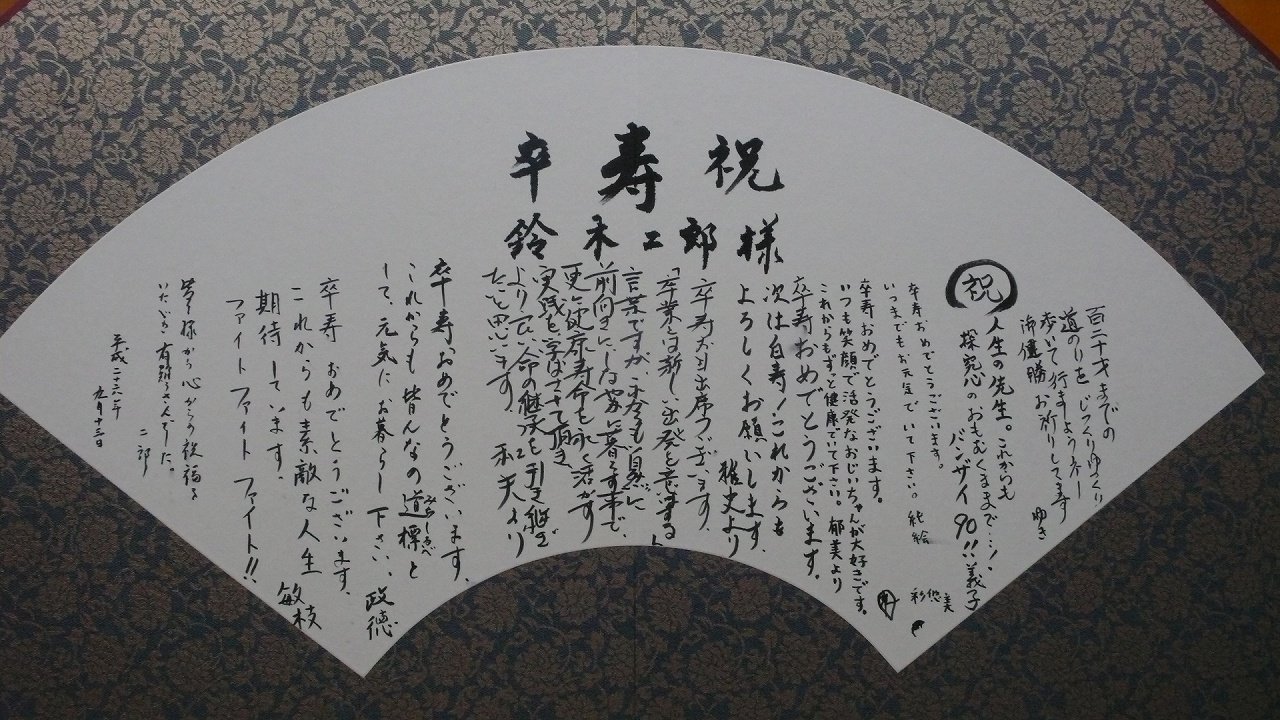 祝寿卒
鈴木二郎様
百二十才までの
道のりを じっくりゆっくり
歩いて行きましょうネー
御健勝お祈りしてます
ゆき
祝
人生の先生。これからも
探究心のおもむくままで…!
バンザイ90!!義子
悠美
彩
卒寿おめでとうございます。
いつまでもお元気でいて下さい。純絵
卒寿おめでとうございます。
いつも笑顔で活発なおじいちゃんが大好きです。
これからもずっと健康でいて下さい。郁美より
卒寿おめでとうございます。
次は白寿!これからも
よろしくお願いします。
雅史より
卒寿おめ出席うございます。
「卒業は新しい出発を意味する」
言葉ですが、今も自然に
前向きにしな家に暮らす事で、
更に健康寿命も永く活かす
実践を学ばさせて頂き
より良い命の継承を引き継ぎ
たいと思います。和夫より
卒寿おめでとうございます。
これからも皆んなの道標と
みちしるべ
して、元気にお暮らし下さい。
政徳
卒寿おめでとうございます。
これからも素敵な人生
期待しています。
ファイト ファイト ファイト!!
敏枝
皆様から心からの祝福を
いただき有難うさんでした。
二郎
平成二十六年
九月十三日